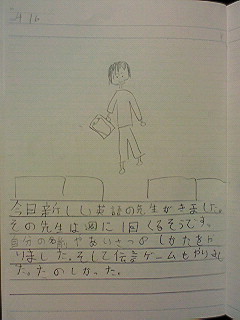 今日新しい英語の先生がきました。
その先生は週に1回くるそうです。
自分の名前やあいさつのしかたをや
りました。そして伝言ゲームもやりまし
た。たのしかった。